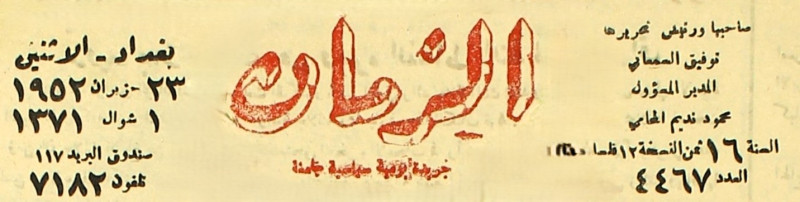 صاحبها ورئيس تحريرها
توفيق السمعاني
المدير المسؤول
محمود نديم المحامي
السنة ١٦ ثمن النسخة ١٢ فلسا
العدد ٤٤٦٧
الزمان
جريدة يومية سياسية جامعة
بغداد - الاثنين
٢٣ حزيران ١٩٥٢
١ شوال ١٣٧١
صندوق البريد ١١٧
تلفون ٧١٨٢